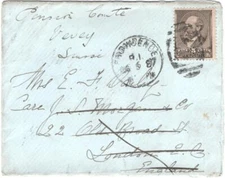 Pension Comte
Vevey
PROVIDENCE
87
Mrs E. F.
Care J. S. Morgan & Co
22 Old Broad St
London E. C.
England